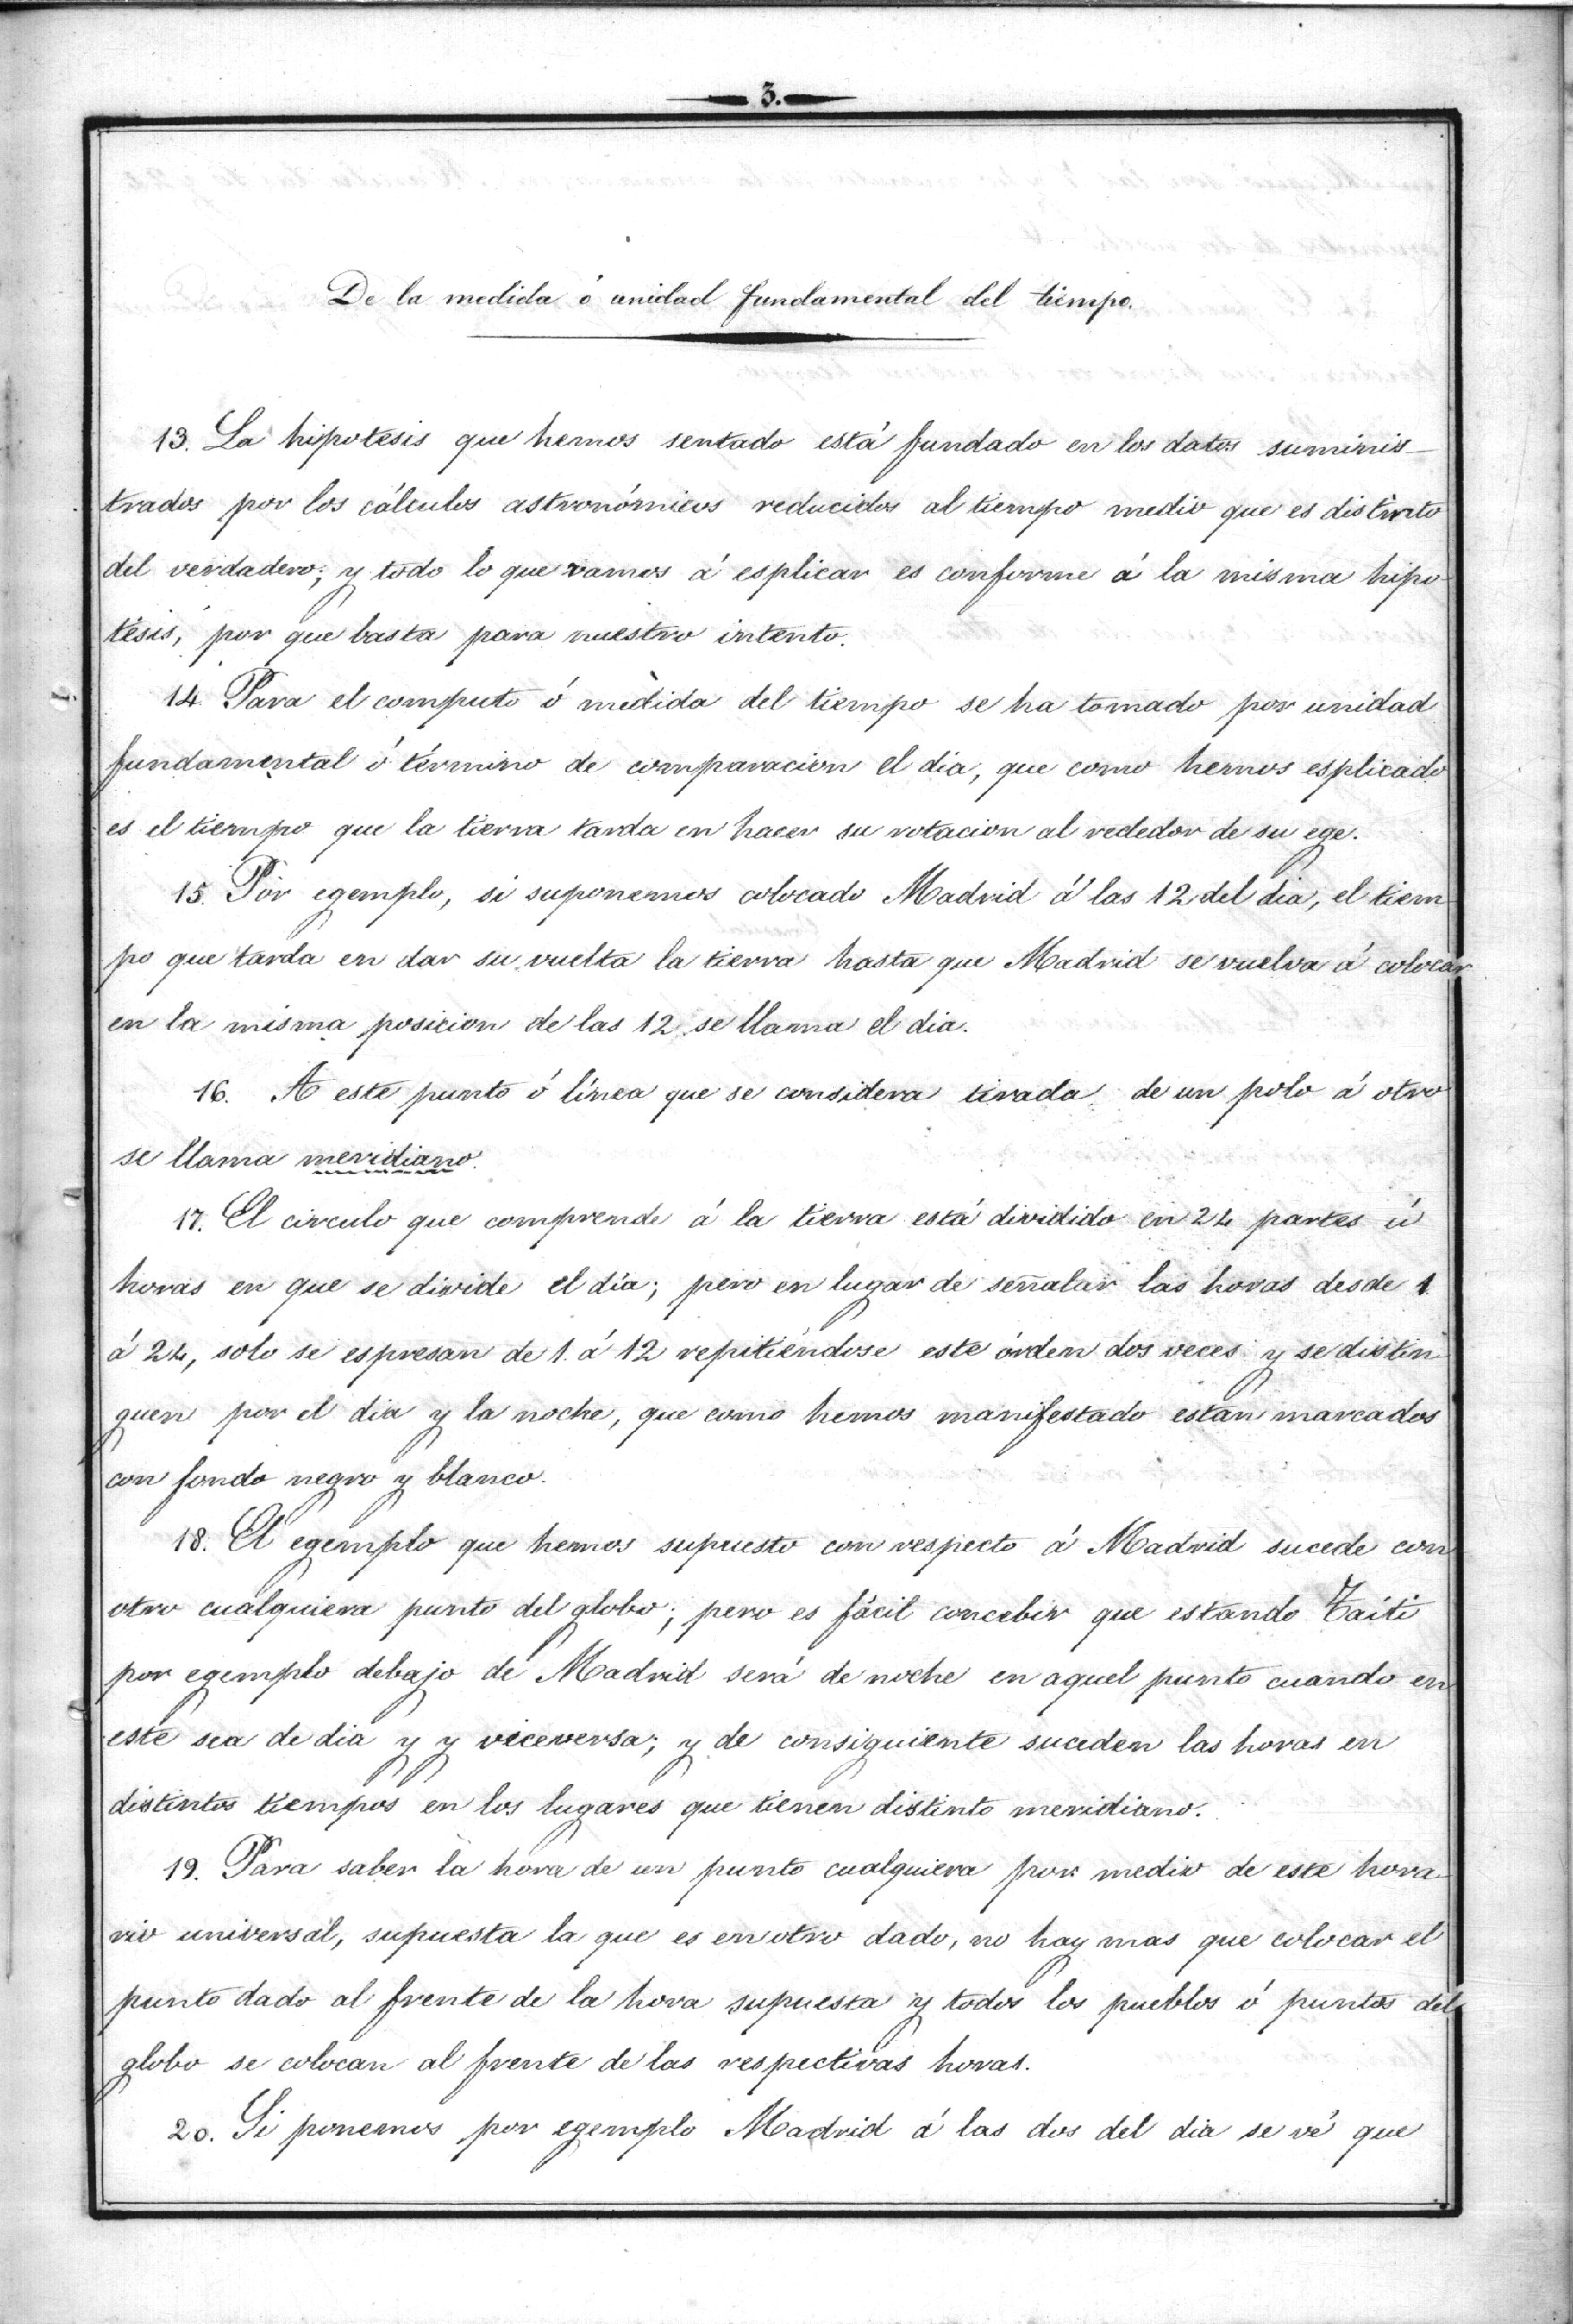 3.
De la medida ó unidad fundamental del tiempo.
13. La hipotesis que hemos sentado está fundado en los datos suminis-
trados por los cálculos astronómicos reducidos al tiempo medio que es distinto
del verdadero; y todo lo que vamos á esplicar es conforme á la misma hipo
tesis, por que basta para nuestro intento.
14. Para el computo ó medida del tiempo se ha tomado por unidad
fundamental ó término de comparacion el dia, que como hemos esplicado
es el tiempo que la tierra tarda en hacer su rotacion al rededor de su ege.
15. Por egemplo, si suponemos colocado Madrid á las 12 del dia, el tiem
po que tarda en dar su vuelta la tierra hasta que Madrid se vuelva á colocar
en la misma posicion de las 12 se llama el dia.
16. A este punto ó línea que se considera tirada de un polo á otro
se llama meridiano.
17. El circulo que comprende á la tierra está dividido en 24 partes ú
horas en que se divide el día; pero en lugar de señalar las horas desde 1
á 24, solo se espresan de 1. á 12 repitiéndose este órden dos veces y se distin
guen por el dia y la noche, que como hemos manifestado están marcados
con fondo negro y blanco.
18. El egemplo que hemos supuesto con respecto á Madrid sucede con
otro cualquiera punto del globo; pero es fácil concebir que estando Taíti
por egemplo debajo de Madrid será de noche en aquel punto cuando en
este sea de dia y y viceversa; y de consiguiente suceden las horas en
distintos tiempos en los lugares que tienen distinto meridiano.
19. Para saber la hora de un punto cualquiera por medio de este hora-
rio universal, supuesta la que es en otro dado, no hay mas que colocar el
punto dado al frente de la hora supuesta y todos los pueblos ó puntos del
globo se colocan al frente de las respectivas horas.
20. Si ponemos por egemplo Madrid á las dos del dia se vé que